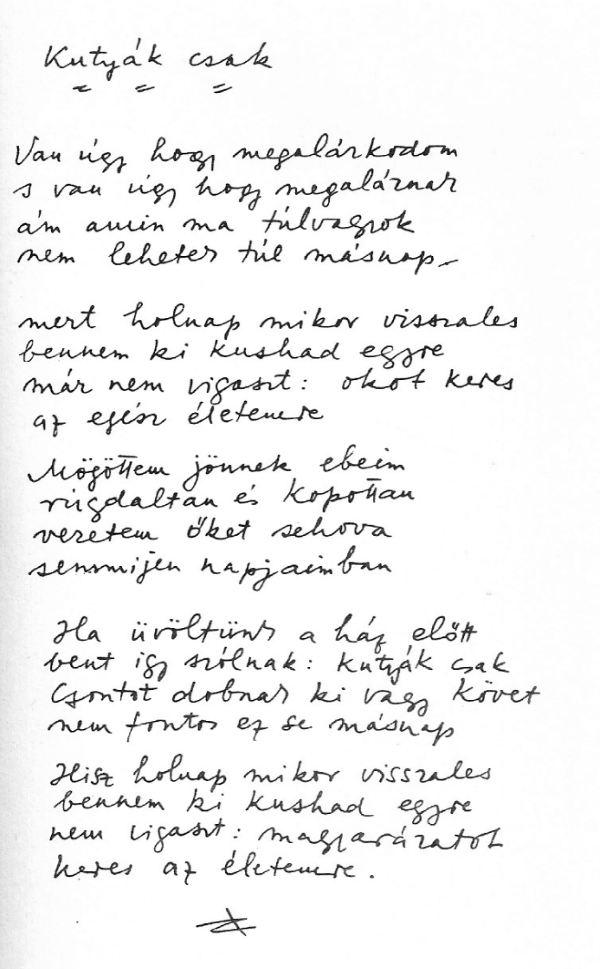 Kutyák csak
Van úgy hogy megalázkodom
s van úgy hogy megaláznak
ám amin ma túlvagyok
nem lehetek túl másnap
mert holnap mikor visszales
bennem ki kushad egyre
már nem vigaszt: okot keres
az egész életemre
Mögöttem jönnek ebeim
rúgdaltan és kopottan
vezetem őket sehova
semmijen napjaimban
Ha üvöltünk a ház előtt
bent így szólnak: kutyák csak
Csontot dobnak ki vagy követ
nem fontos ez se másnap
Hisz holnap mikor visszales
bennem ki kushad egyre
nem vigaszt: magyarázatot
keres az életemre.